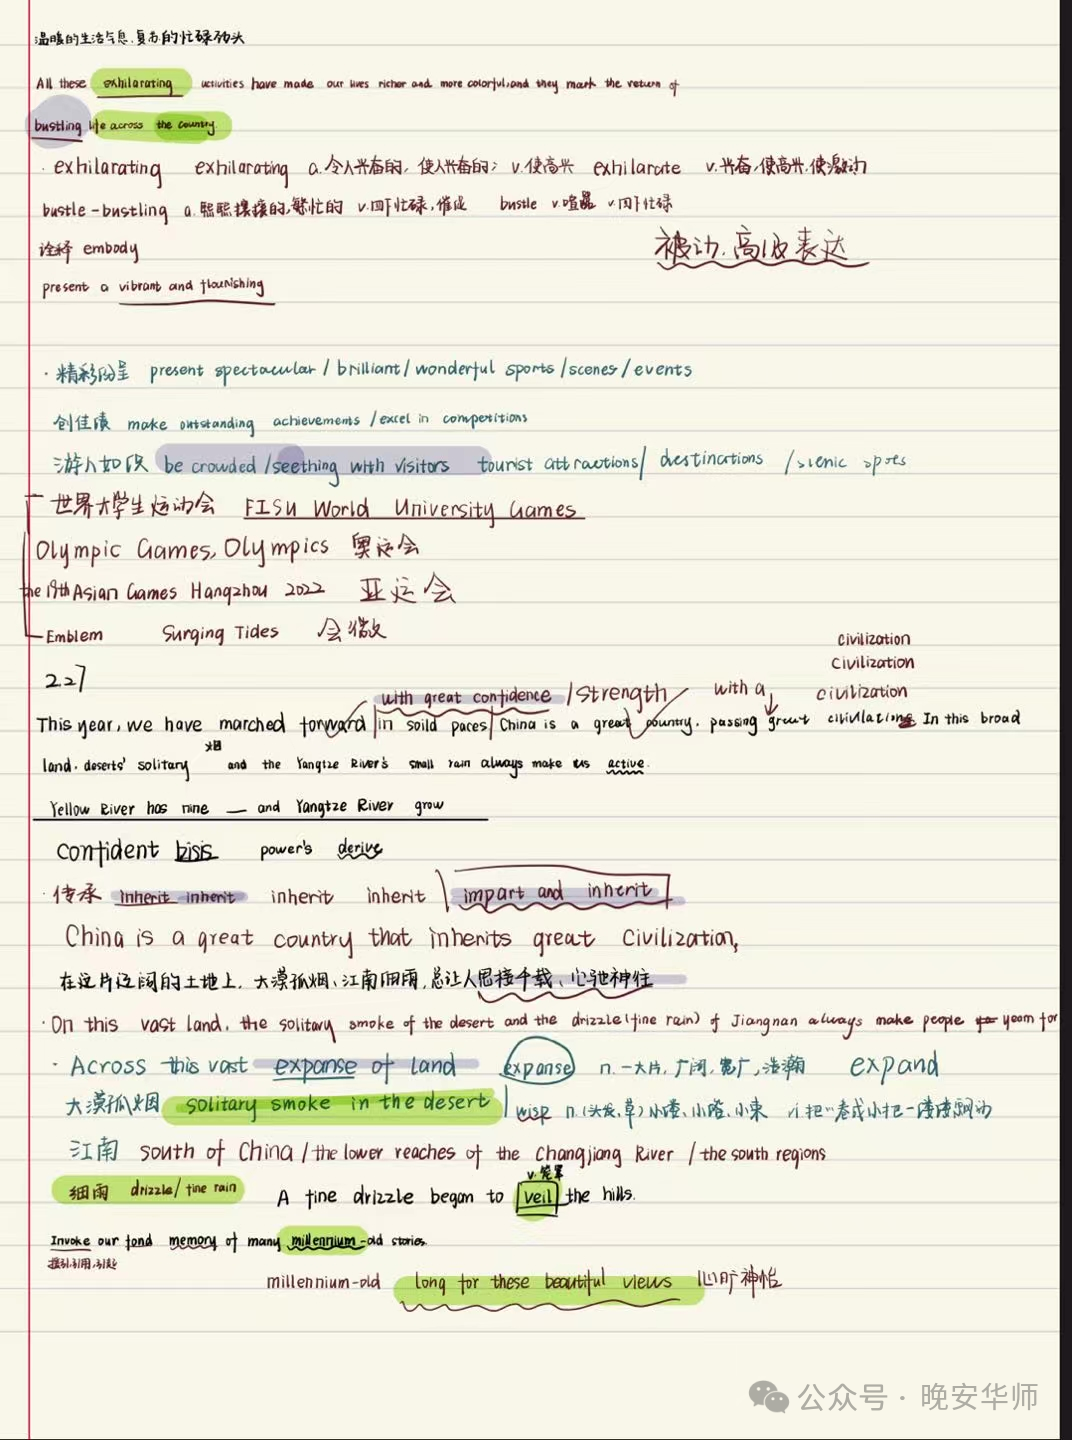 温暖的生活气息、复苏的忙碌劲头
All these exhilarating activities have made our lives richer and more colorful, and they mark the return of
bustling life across the country.
· exhilarating exhilarating a. 令人兴奋的, 使人兴奋的; v. 使高兴 exhilarate v. 兴奋, 使高兴, 使激动
bustle - bustling a. 熙熙攘攘的, 繁忙的 v. 四下忙碌, 催促 bustle v. 喧嚣 v. 四下忙碌
诠释 embody
被动、高级表达
present a vibrant and flourishing
· 精彩纷呈 present spectacular / brilliant / wonderful sports / scenes / events
创佳绩 make outstanding achievements / excel in competitions
游人如织 be crowded / seething with visitors tourist attractions / destinations / scenic spots
世界大学生运动会 FISU World University Games
Olympic Games, Olympics 奥运会
the 19th Asian Games Hangzhou 2022 亚运会
Emblem Surging Tides 会徽
civilization
civilization
2.27
with great confidence / strength with a civilization
This year, we have marched forward in soild paces China is a great country. passing great In this broad
烟
land. deserts' solitary and the Yangtze River's small rain always make us active.
Yellow River has nine — and Yangtze River grow
confident bisis power's derive
· 传承 inherit inherit inherit inherit impart and inherit
China is a great country that inherits great Civilization,
在这片辽阔的土地上, 大漠孤烟、江南细雨, 总让人思接千载、心驰神往
· On this vast land, the solitary smoke of the desert and the drizzle (fine rain) of Jiangnan always make people yearn for
· Across this vast expanse of land expanse n. 一大片, 广阔, 宽广, 浩瀚 expand
大漠孤烟 solitary smoke in the desert wisp n. (头发, 草) 小缕、小束 vi.
江南 south of China / the lower reaches of the Changjiang River / the south regions
v. 笼罩
细雨 drizzle / fine rain A fine drizzle began to veil the hills.
Invoke our fond memory of many millennium-old stories.
援引, 引用, 引起
millennium-old long for these beautiful views 心旷神怡
公众号 · 晚安华师